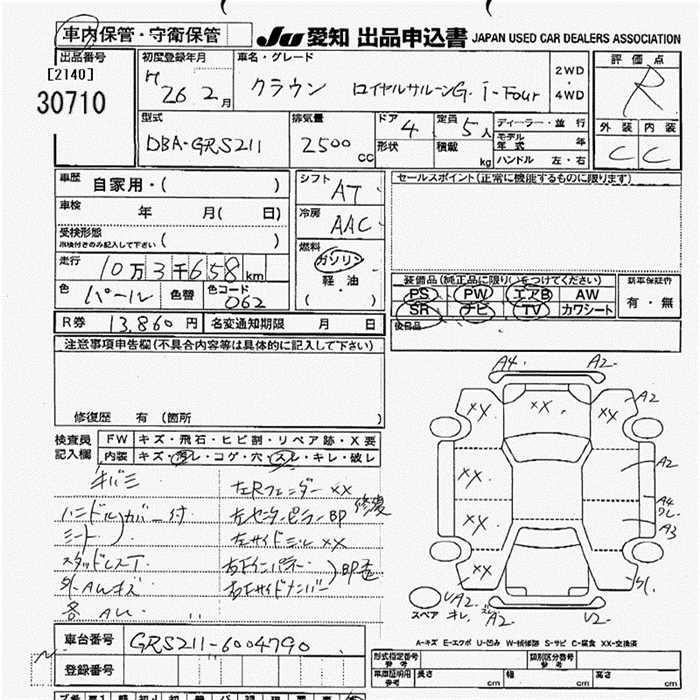 車内保管・守衛保管
JU 愛知 出品申込書 JAPAN USED CAR DEALERS ASSOCIATION
出品番号
[2140]
30710
初度登録年月
H 26 2月
車名・グレード
クラウン ロイヤルサルーンG. i-Four
2WD
・
4WD
評価点
R
外装 内装
C C
型式
DBA-GRS211
排気量
2500 cc
ドア 4
形状
定員 5人
積載 kg
ディーラー・並行
モデル年式 年
ハンドル 左・右
車歴 自家用・( )
車検 年 月( 日)
受検形態
※検付きのみ記入して下さい ( )
走行 10万3千658km
色 パール 色替 色コード 062
R券 13,860円 名変通知期限 月 日
シフト AT
冷房 AAC
燃料
ガソリン
軽油
( )
セールスポイント(正常に機能するものに限ります)
装備品(純正品に限り○をつけてください)
PS PW エアB AW
SR ナビ TV カワシート
後日品
新車保証書
有・無
注意事項申告欄(不具合内容等は具体的に記入して下さい)
修復歴 有 (箇所 )
検査員記入欄
FW キズ・飛石・ヒビ割・リペア跡・X要
内装 キズ・汚レ・コゲ・穴・スレ・キレ・破レ
キバミ
ハンドルカバー付
シート
スタッドレスT
外AWキズ
左Rフェンダー XX
左センターピラーBP 修復
左サイドシル XX
右Fインパネー
右Fサイドメンバー
BP歪
A4 A2
XX XX XX A2
XX A2
XX A4
A3
XX
スペア キレ
A2
U2
A-キズ E-エクボ U-凹み W-補修跡 S-サビ C-腐食 XX-交換済
車台番号 GRS211-6004790
登録番号
型式指定番号 参考
類別区分番号 参考
車庫証明用 参考
長さ cm 幅 cm 高さ cm